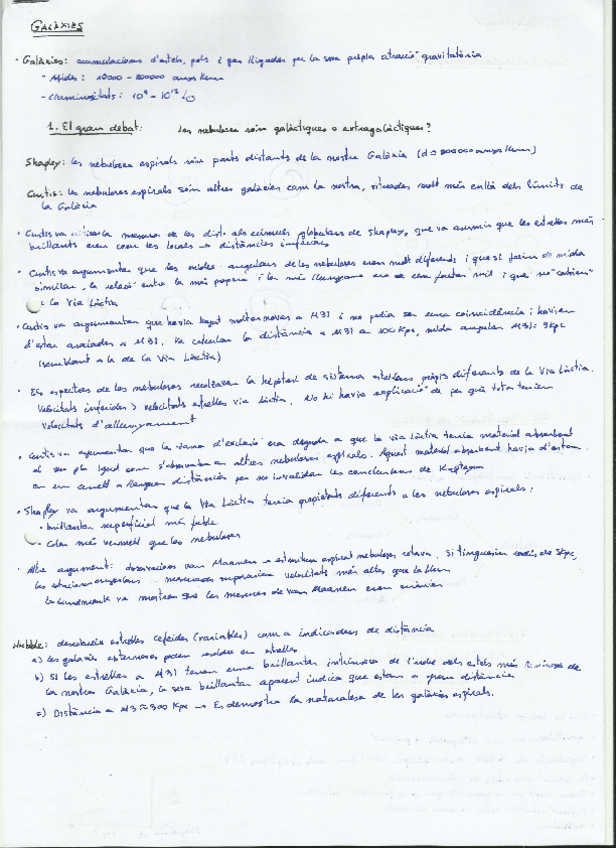 GALÀXIES
· Galàxies: acumulacions d'estels, pols i gas lligades per la seva pròpia atracció gravitatòria
- Mides: 10000 - 200000 anys llum
- Lluminositats:
1. El gran debat: les nebuloses són galàctiques o extragalàctiques?
Shapley: les nebuloses espirals són parts distants de la nostra Galàxia
Curtis: les nebuloses espirals són altres galàxies com la nostra, situades molt més enllà dels límits de
la Galàxia
· Curtis va criticar la mesura de les dist. als cúmuls globulars de Shapley, que va assumir que les estrelles més
brillants eren com les locals → distàncies inferiors
· Curtis va argumentar que les mides angulars de les nebuloses eren molt diferents i que si fossin de mida
similar, la relació entre la més propera i la més llunyana era de cent factor i que no "cabien"
a la Via Làctia
· Curtis va argumentar que havia hagut moltes novas a M31 i no podia ser una coincidència i havien
d'estar associades a M31. Va calcular la distància a M31 a Kpc, mida angular M31=
(semblant a la de la Via Làctia)
· Els espectres de les nebuloses recolzaven la hipòtesi de sistemes estel·lars propis diferents de la Via Làctia.
Velocitats inferides > velocitats estrelles via làctia. No hi havia explicació de per què totes tenien
velocitats d'allunyament
· Curtis va argumentar que la zona d'exclusió era deguda a que la via làctia tenia material absorbent
al seu pla igual com s'observava en altres nebuloses espirals. Aquest material absorbent havia d'estar
en un anell a llargues distàncies per no invalidar les conclusions de Kapteyn
· Shapley va argumentar que la Via Làctia tenia propietats diferents a les nebuloses espirals:
· brillantor superficial més feble
· Color més vermell que les nebuloses
· Altre argument: observacions van Maanen → estimava espiral nebulosa rotava. Si tinguessin radis de
les rotacions angulars mesurades suposarien velocitats més altes que la llum
Lundmark va mostrar que les mesures de van Maanen eren errònies
Hubble: descobreix estrelles cefeides (variables) com a indicadores de distància
a) les galàxies externes podem resoldre en estrelles
b) Si les estrelles a M31 tenen una brillantor intrínseca de l'ordre dels estels més lluminosos de
la nostra Galàxia, la seva brillantor aparent indica que estan a gran distància
c) Distància a M31 ≈ 300 Kpc → Es demostra la naturalesa de les galàxies espirals.